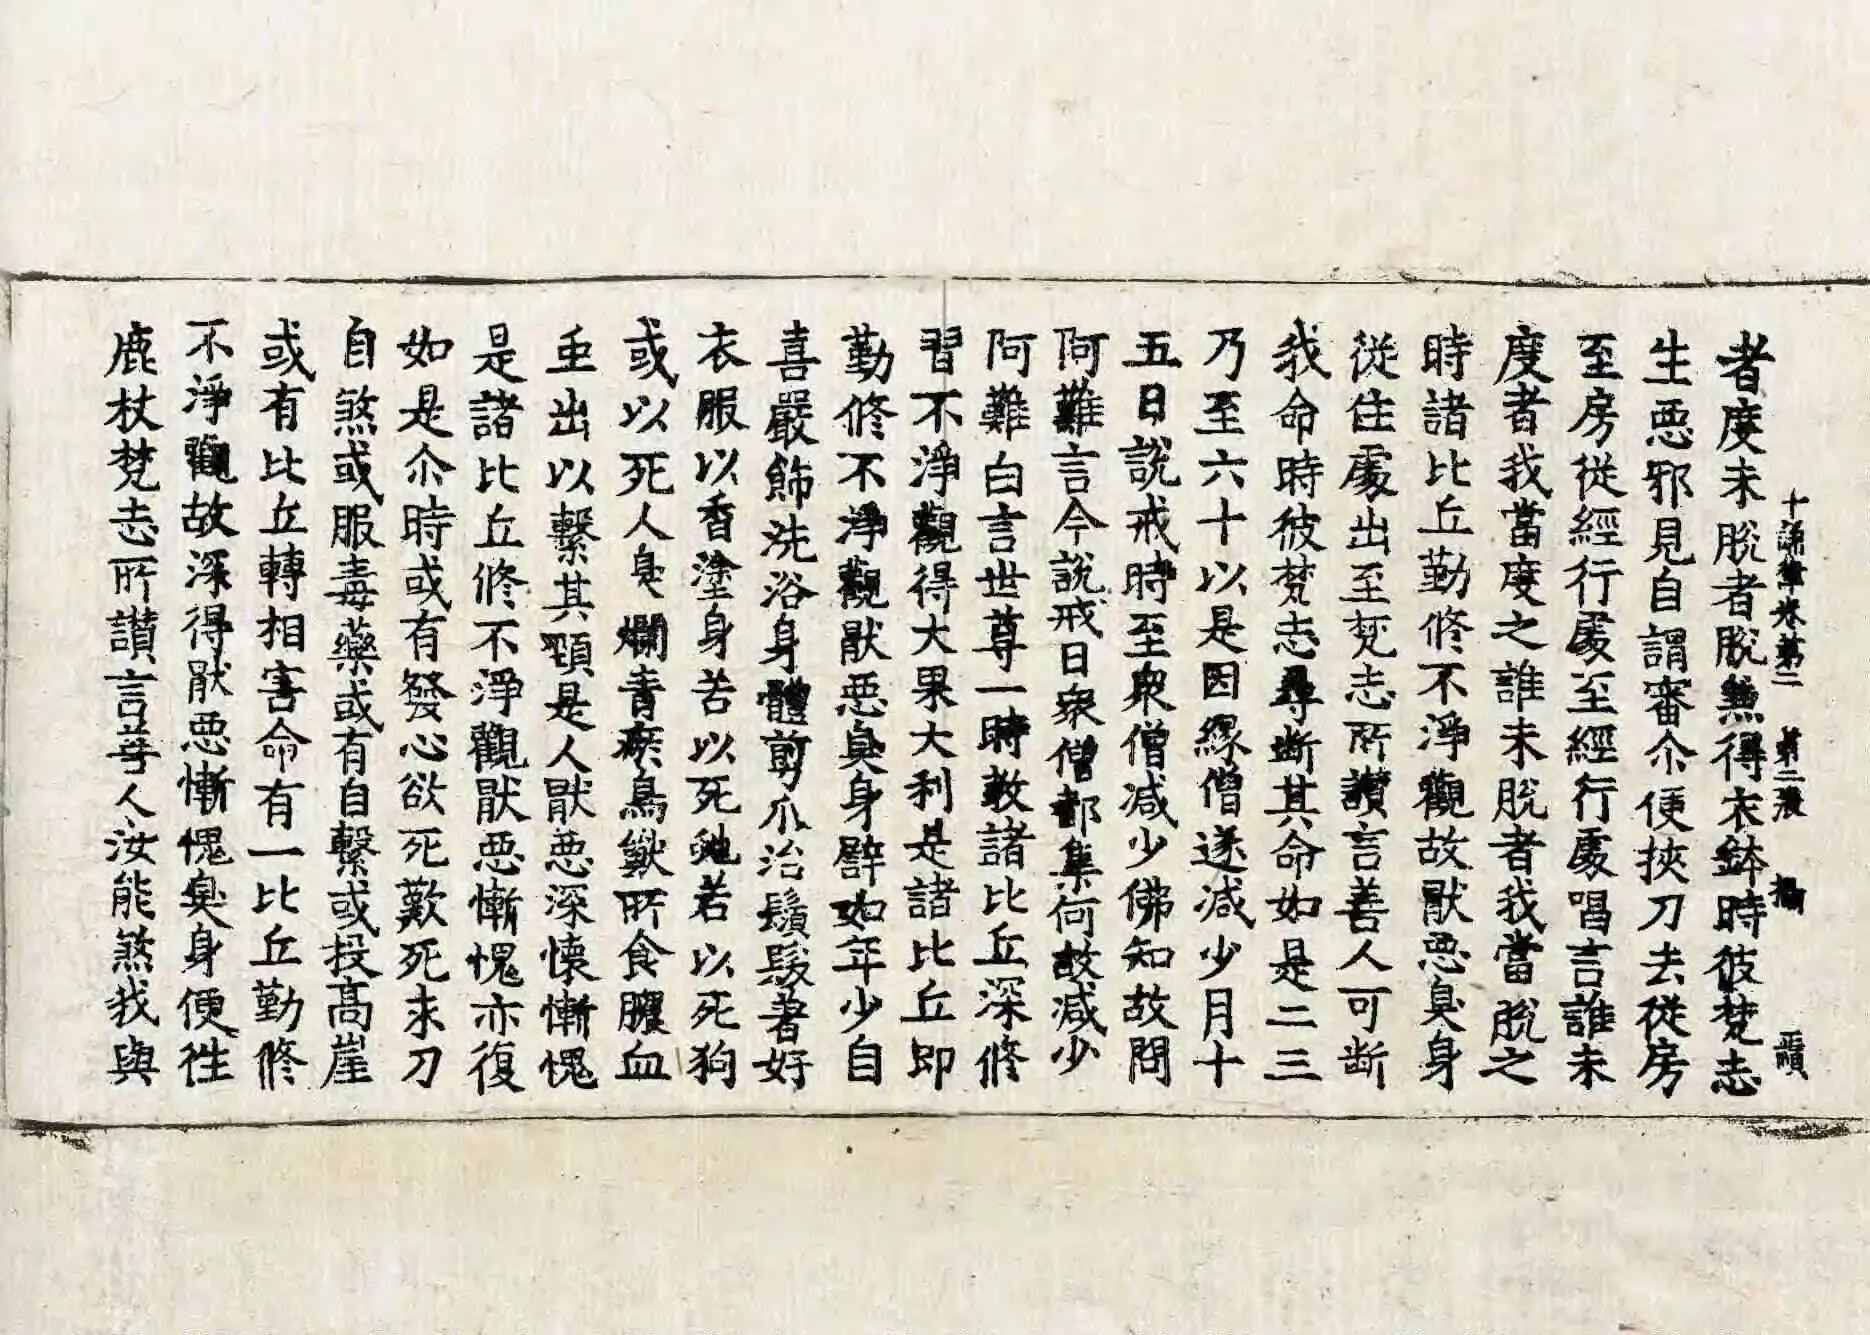 十誦律卷第二　第二張　攝
者度未脫者脫無得衣鉢時彼梵志
生惡邪見自謂審尒便挾刀去從房
至房從經行處至經行處唱言誰未
度者我當度之誰未脫者我當脫之
時諸比丘勤修不淨觀故厭惡臭身
從住處出至梵志所讚言善人可斷
我命時彼梵志尋斷其命如是二三
乃至六十以是因緣僧遂減少月十
五日說戒時至衆僧减少佛知故問
阿難言今說戒日衆僧都集何故减少
阿難白言世尊一時教諸比丘深修
習不淨觀得大果大利是諸比丘即
勤修不淨觀猒惡臭身譬如年少自
喜嚴飾洗浴身體剪爪治鬚髮著好
衣服以香塗身若以死虵若以死狗
或以死人臭爛青瘀鳥獸所食膿血
虫出以繫其頸是人猒惡深懷慚愧
是諸比丘修不淨觀猒惡慚愧亦復
如是尒時或有發心欲死歎死求刀
自煞或服毒藥或有自繫或投高崖
或有比丘轉相害命有一比丘勤修
不淨觀故深得猒惡慚愧臭身便往
鹿杖梵志所讚言善人汝能煞我與